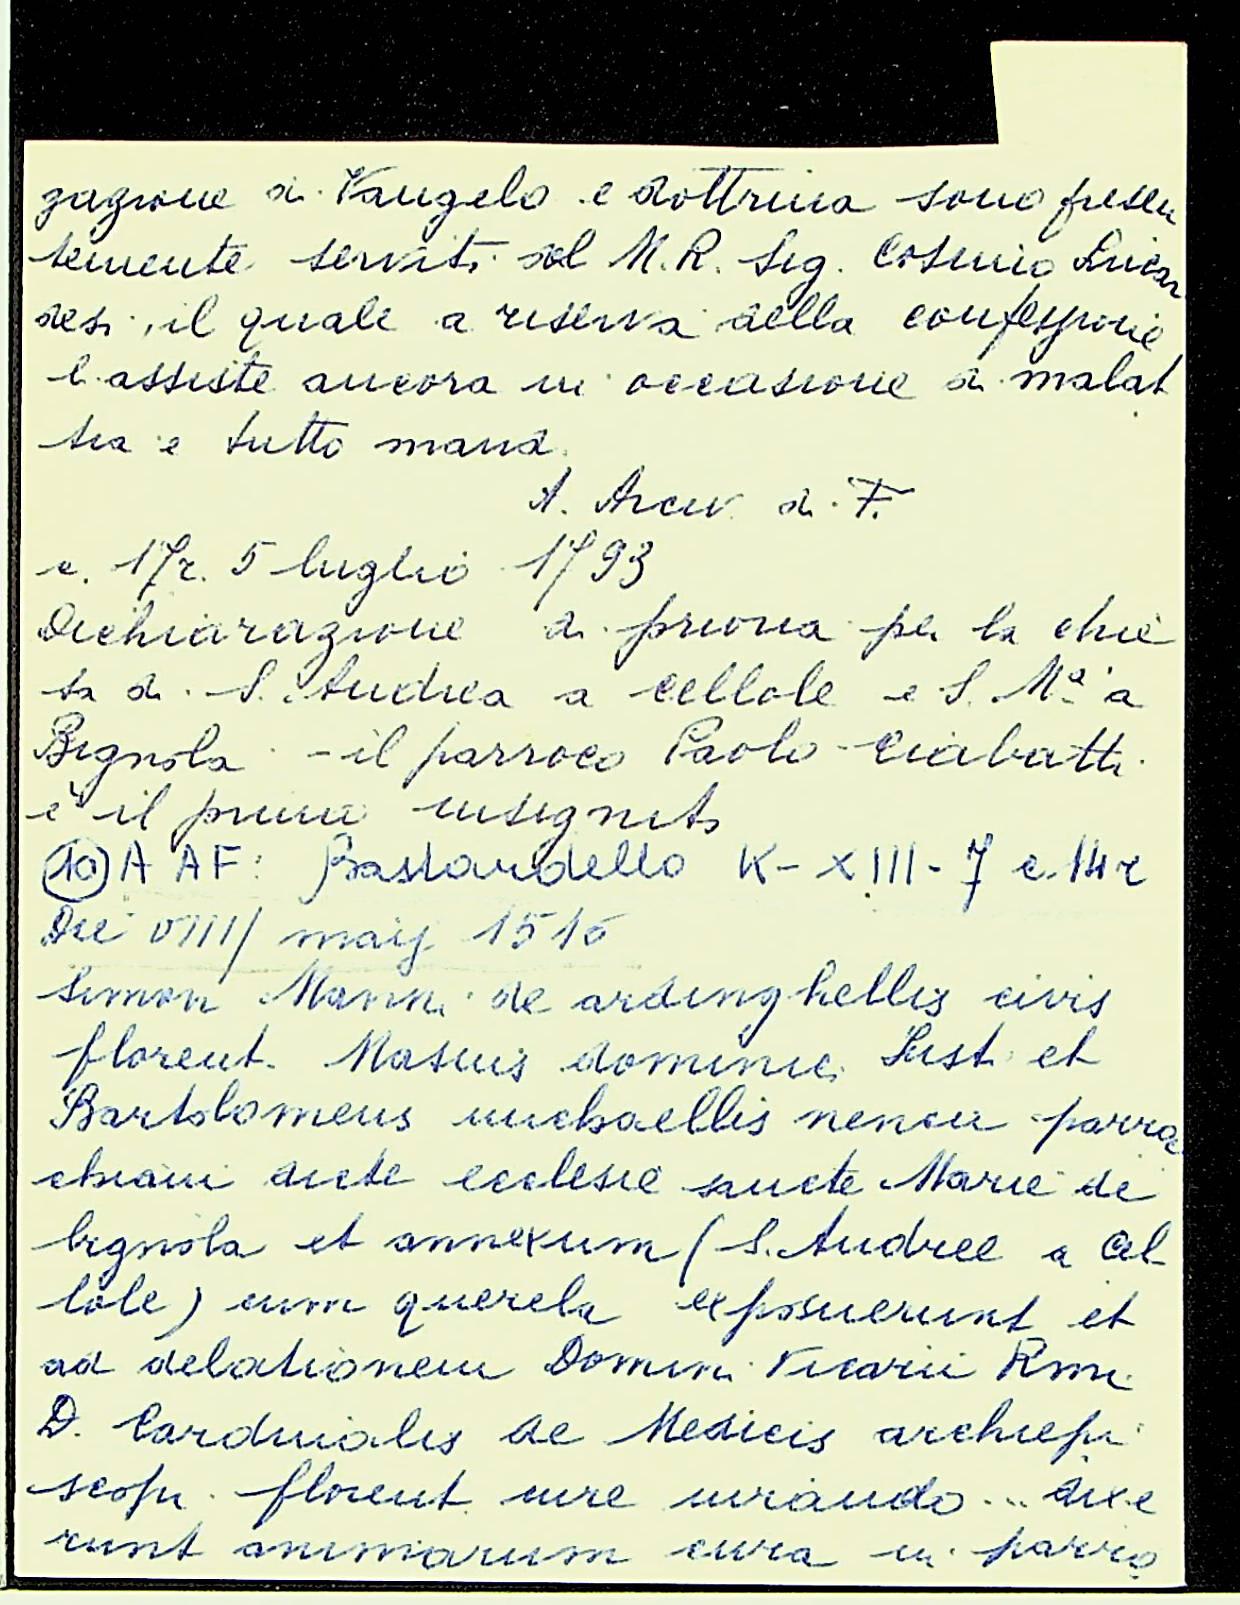 gazione di Vangelo e dottrina sono presen
temente serviti dal M.R. Sig. Cosimo Lucar
desi, il quale a riserva della confessione
li assiste ancora in occasione di malat
tia e tutto
A. Arciv. di F.
c. 17r. 5 luglio 1793
Dichiarazione di prioria per la chie
sa di S. Andrea a Cellole e S. Mª a
Bignola - il parroco Paolo Ciabatti
è il primo insignito
(10) A AF: Bastardello K-XIII-7 c.14r
Die VIII maij 1516
Simon Manni de ardinghellis civis
florent. Masuis dominici Sust. et
Bartolomeus michaellis nencii parro
chiani dicte ecclesie sancte Marie de
bignola et annexum (S. Andree a Cel
lole) cum querela exposuerunt et
ad delationem Domini Vicarii Rmi
D. Cardinialis de Medicis archiepi
scopi florent iure iurando... dixe
runt animarum cura in parro